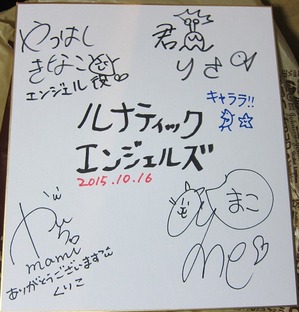 やつはし
きなこ
エンジェル役
君
りさ
キャララ!!
ルナティック
エンジェルズ
2015.10.16
まこ
mami
ありがとうございます
くりこ